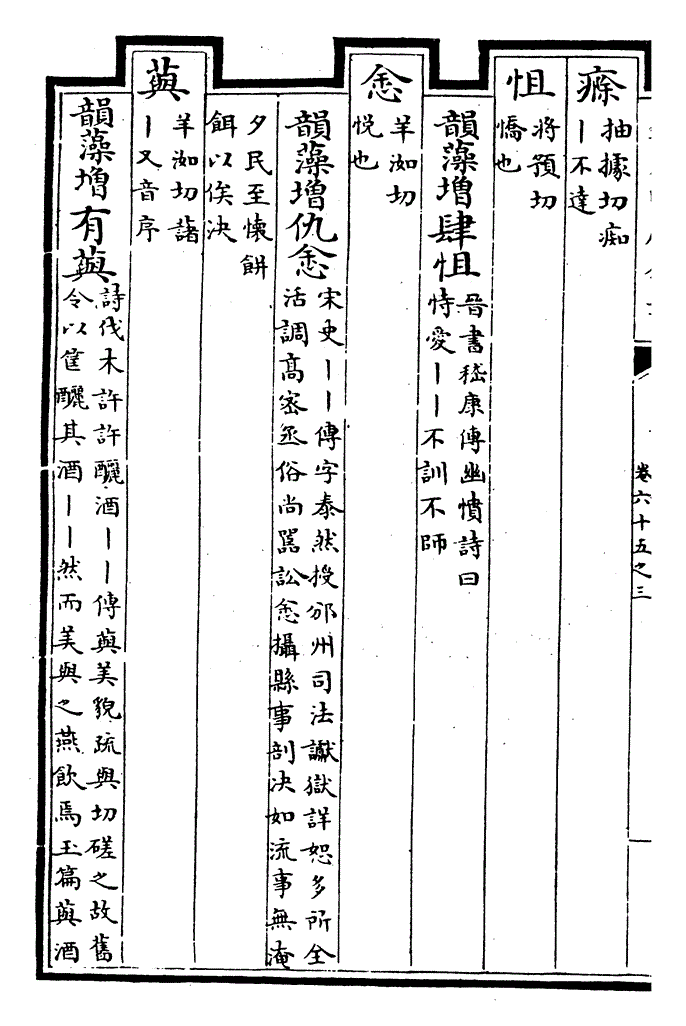 㾻抽據切痴
丨不達
怚將預切
憍也
韻藻增肆怚晉書嵇康傳幽憤詩曰
恃愛丨丨不訓不師
悆羊洳切
悅也
韻藻增仇悆宋史丨丨傳字泰然授邠州司法讞獄詳恕多所全
活調髙密丞俗尚嚚訟悆攝縣事剖决如流事無淹
夕民至懷餅
餌以俟決
藇羊洳切藷
丨又音序
韻藻增有藇詩伐木許許釃酒丨丨傳藇美貌疏與切磋之故舊
令以筐釃其酒丨丨然而美與之燕飲焉玉篇藇酒
卷六十五之三